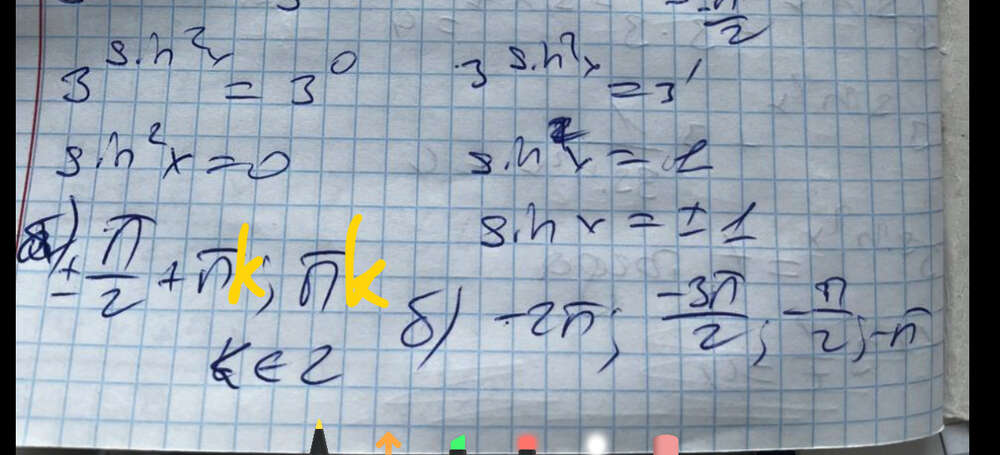 -π/2
3^(sin²x) = 3^0
3^(sin²x) = 3^1
sin²x = 0
sin²x = 1
sin x = ± 1
а) ± π/2 + πk; πk
k ∈ Z
б) -2π; -3π/2; -π/2; -π